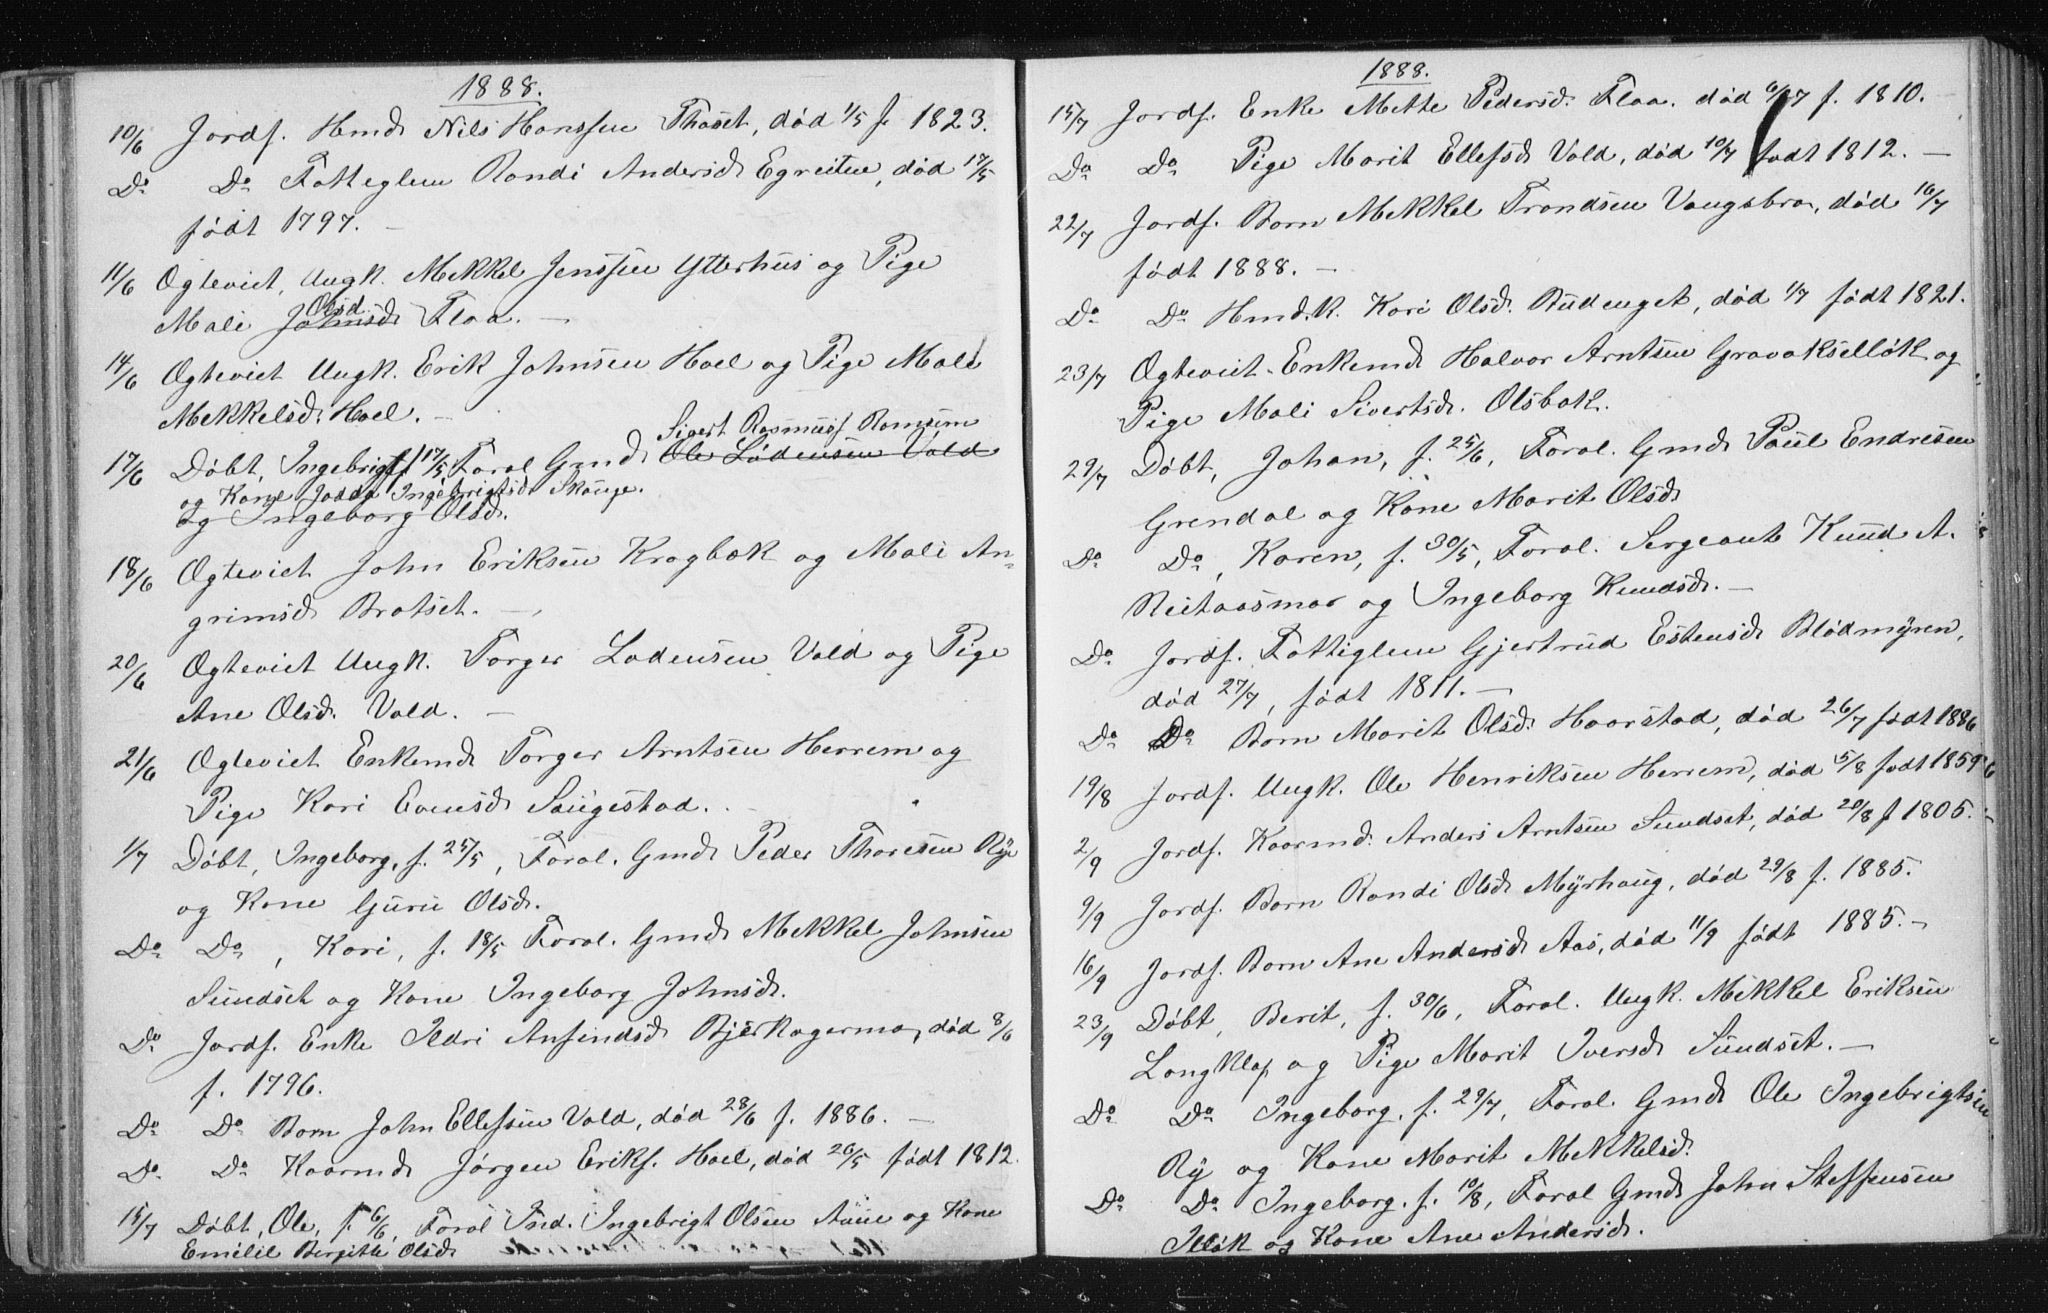 1888.
10/6 Jordf. Hmd Nils Hanssen Thoset, død 1/5 f. 1823.
Do Do Fattiglem Randi Andersd Egreiten, død 17/5
født 1797. –
11/6 Ægteviet, Ungk. Mekkel Jenssen Ytterhus og Pige
Olsd
Mali Johnsd Floa. –
14/6 Ægteviet Ungk. Erik Johnsen Hoel og Pige Mali
Mekkelsd. Hoel. –
Sivert Rasmusf Romsem
17/6 Døbt, Ingebrigt f 17/5 Foral Gmd Ole Lødensen Vold
og Kone Ingebrigtsd. Skauge.
og Ingeborg Olsd.
18/6 Ægteviet John Eriksen Krogbæk og Mali An-
grimsd Bratset. –
20/6 Ægteviet Ungk. Torger Lodensen Vold og Pige
Ane Olsd. Vold. –
21/6 Ægteviet Enkemd Torger Arntsen Herrem og
Pige Kari Evensd Saugestad.
1/7 Døbt, Ingeborg, f. 25/5, Foral. Gmd Peder Thoresen Rye
og Kone Guru Olsd.
Do Do, Kari, f. 18/5 Foral. Gmd Mekkel Johnsen
Sundset og Kone Ingeborg Johnsd.
Do Jordf. Enke Ildri Anfindsd Bjerkagermo, død 8/6
f. 1796.
Do Do Barn John Ellefsen Vold, død 28/6 f. 1886. –
Do Do Kaarmd Jørgen Eriks. Hoel, død 26/5 født 1812.
15/7 Døbt, Ole, f. 6/6, Foral Ind. Ingebrigt Olsen Aune og Kone
Emelie Bergitte Olsd
1888.
15/7 Jordf. Enke Mette Pedersd. Floa. død 6/7 f. 1810.
Do Do Pige Marit Ellefsd Vold, død 10/7 født 1812. –
22/7 Jordf. Barn Mekkel Trondsen Vangsbro, død 16/7
født 1888. –
Do Do Hmd.k. Kari Olsd. Rudenget, død 1/7 født 1821.
23/7 Ægteviet Enkemd Halvor Arntsen Gravakselløk og
Pige Mali Sivertsd. Olsbak.
29/7 Døbt, Johan, f. 25/6, Foral. Gmd Paul Endresen
Grendal og Kone Marit Olsd
Do Do, Karen, f. 30/5, Foral. Sergeant Knud A.
Reitaasmo og Ingeborg Knudsd. –
Do Jordf. Fattiglem Gjertrud Estensd Blødmyren,
død 27/7, født 1811. –
Do Do Barn Marit Olsd. Haarstad, død 26/7 født 1886
19/8 Jordf. Ungk. Ole Henriksen Herrem, død 5/8 født 1859
2/9 Jordf. Kaarmd. Anders Arntsen Sundset, død 20/8 f 1805.
9/9 Jordf. Barn Randi Olsd Myrhaug, død 29/8 f. 1885.
16/9 Jordf. Barn Ane Andersd Aas, død 11/9 født 1885. –
23/9 Døbt, Berit, f. 30/6, Foral. Ungk. Mikkel Eriksen
Langklop og Pige Marit Iversd Sundset. –
Do Do Ingeborg. f. 29/7, Foral. Gmd Ole Ingebrigtsen
Ry og Kone Marit Mekkelsd.
Do Do Ingeborg. f. 10/8, Foral Gmd John Steffensen
Illøk og Kone Ane Andersd.